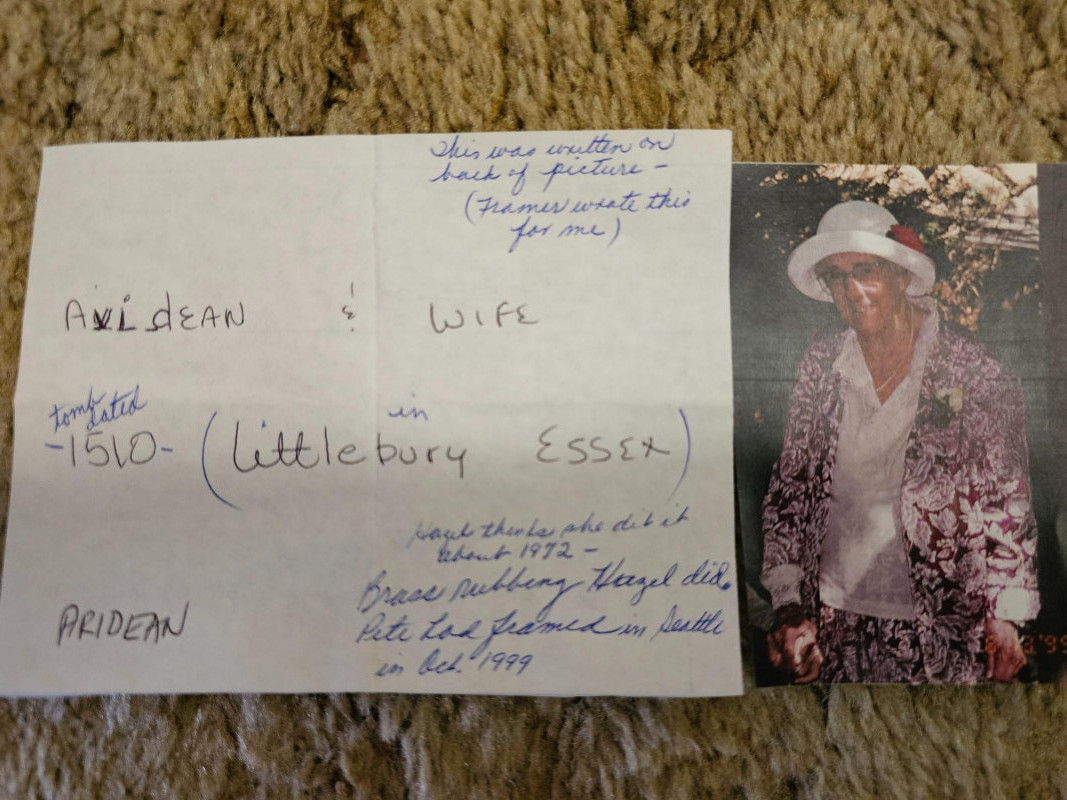 This was written on
back of picture -
(Framer wrote this
for me)
AridEAN & WIFE
tomb dated
-1510- (Littlebury in ESSEX)
Hazel thinks she did it
about 1972 -
Brass rubbing Hazel did.
Pete had framed in Seattle
in Oct. 1999
ARIDEAN
'99